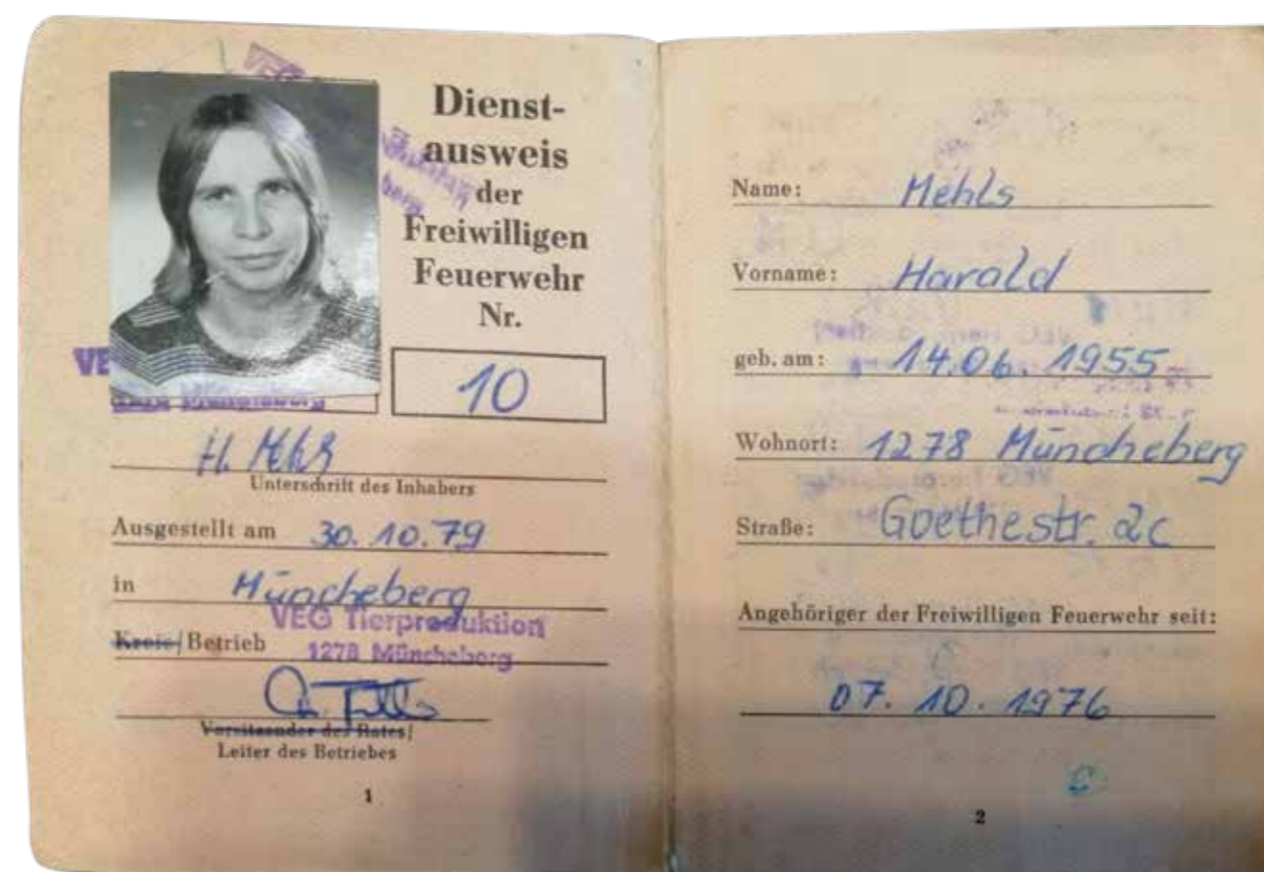 Dienst-
ausweis
der
Freiwilligen
Feuerwehr
Nr.
10
H. Mehls
Unterschrift des Inhabers
Ausgestellt am 30.10.79
in Müncheberg
VEG Tierproduktion
Kreis/Betrieb
1278 Müncheberg
Vorsitzender des Rates/
Leiter des Betriebes
1
Name: Mehls
Vorname: Harald
geb. am: 14.06.1955
Wohnort: 1278 Müncheberg
Straße: Goethestr. 2c
Angehöriger der Freiwilligen Feuerwehr seit:
07.10.1976
2